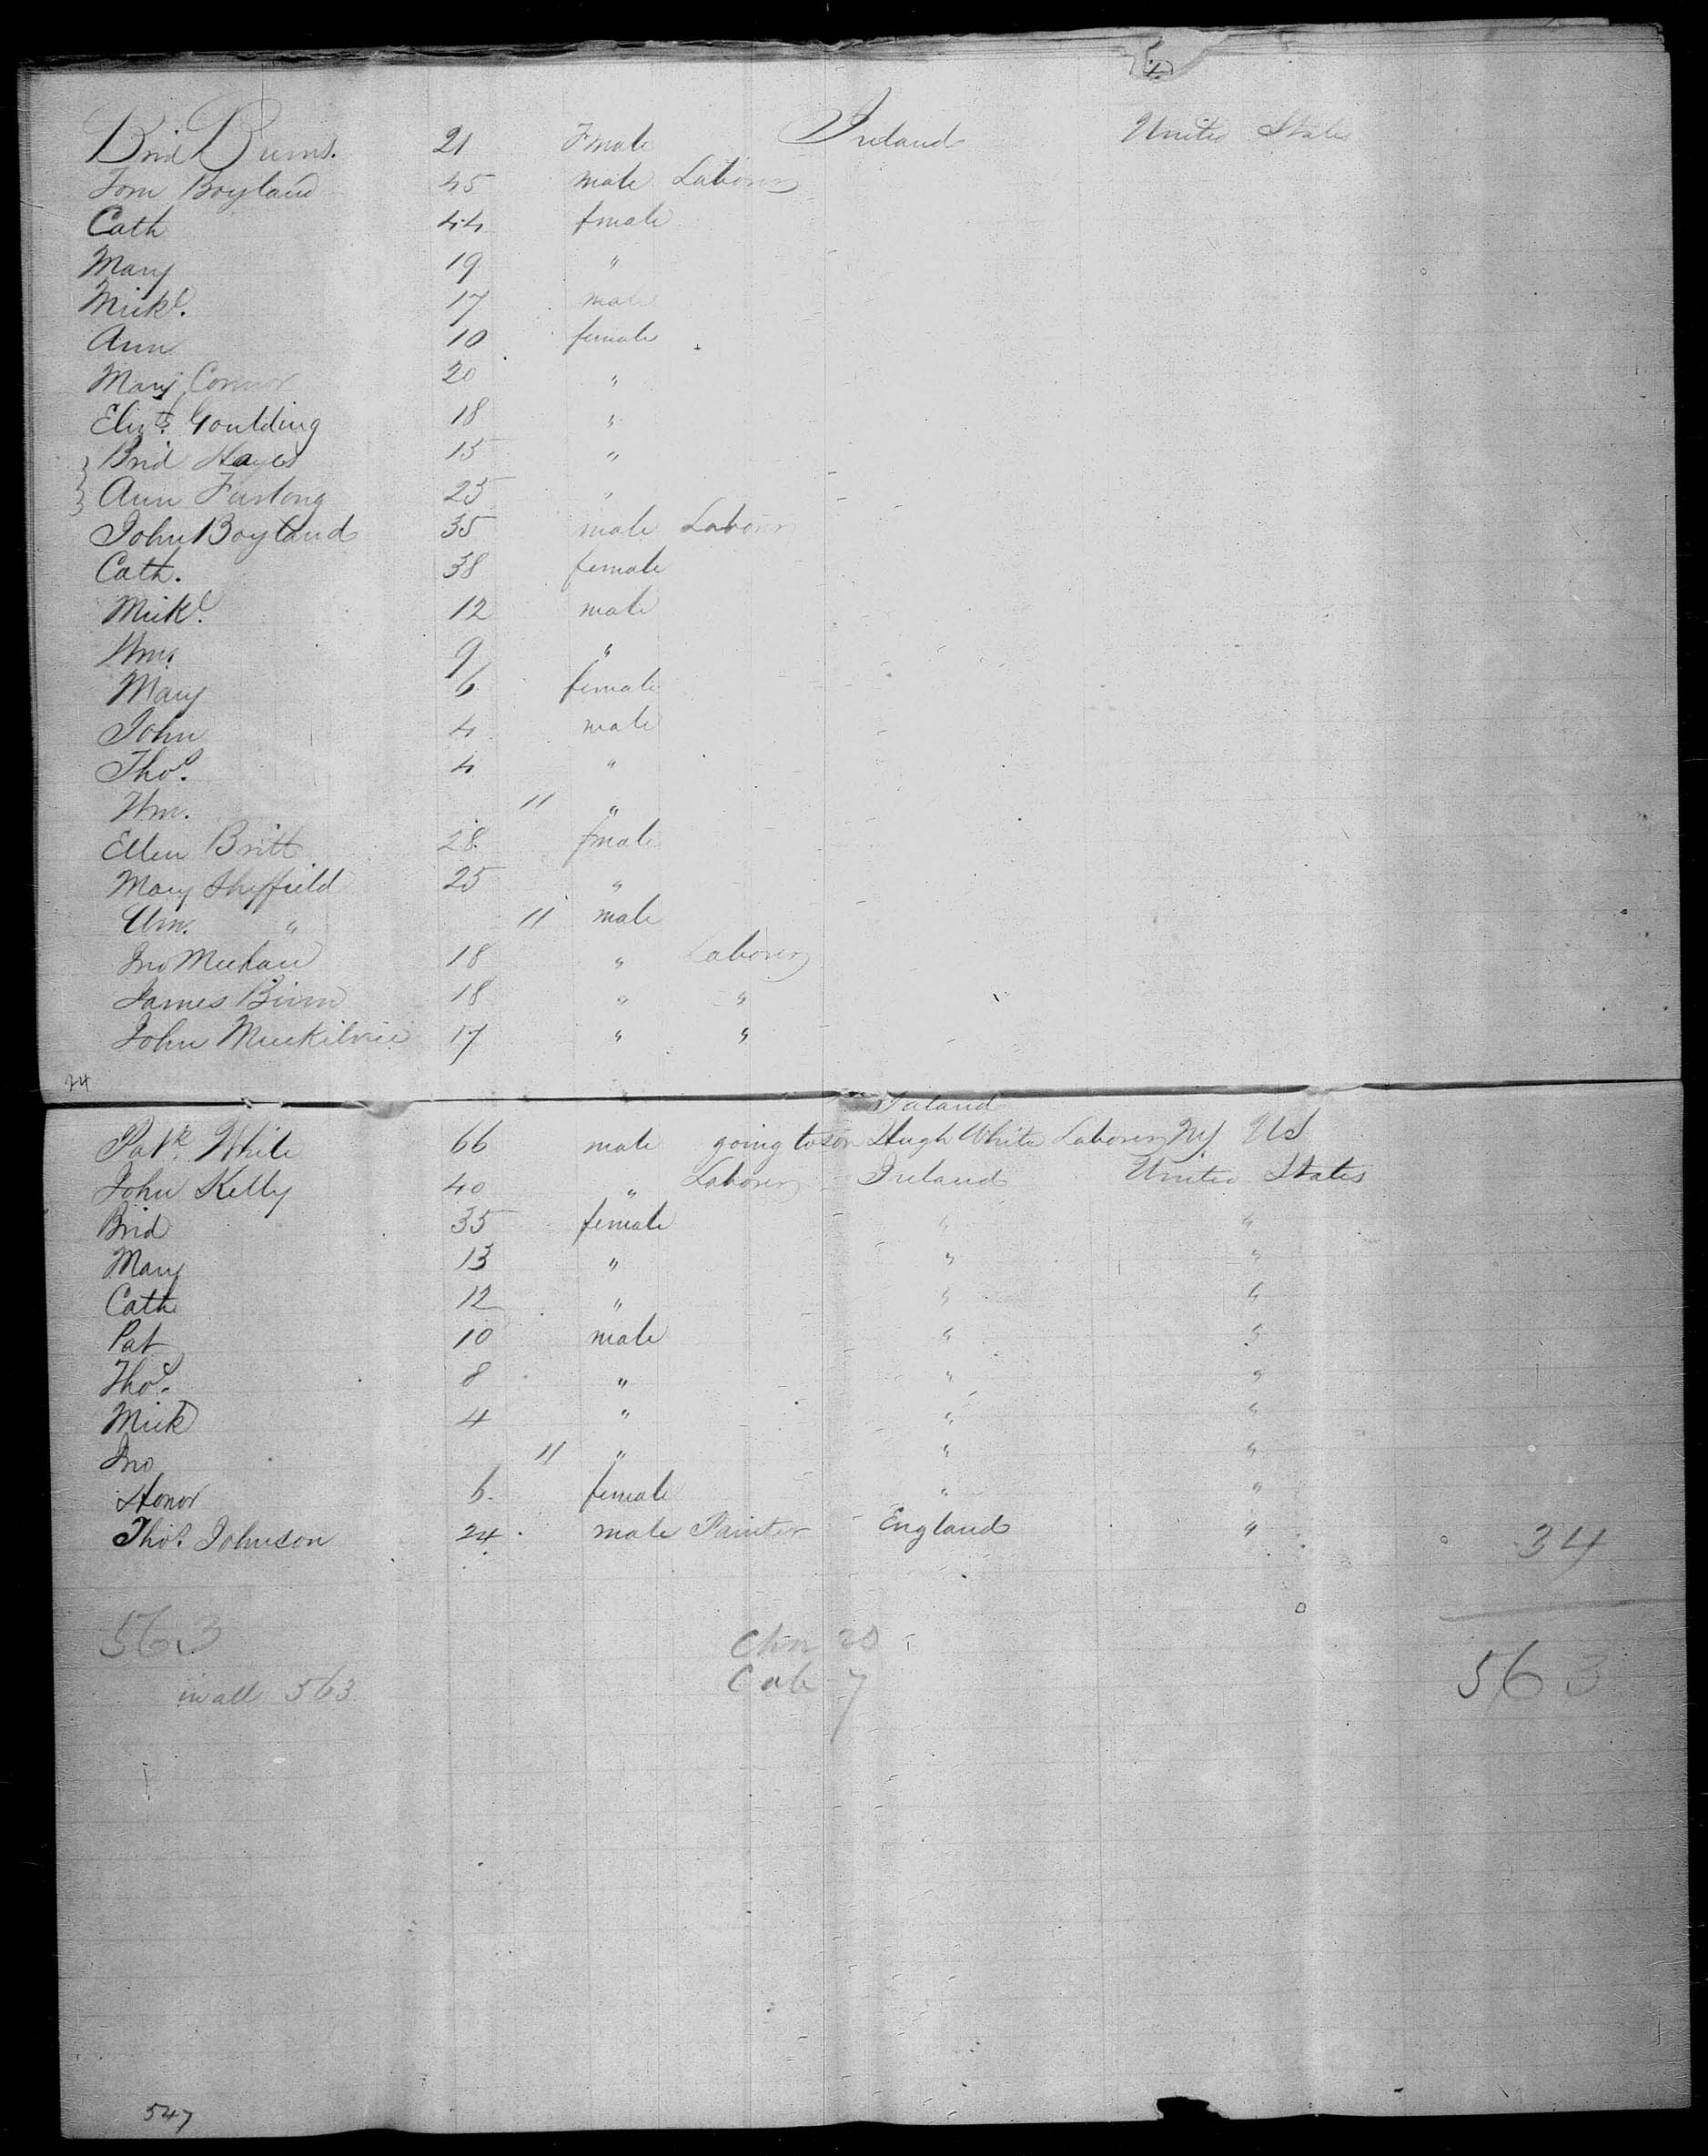 Brid Burns. 21 Fmale Ireland United States
Tom Boyland 45 male Laborer
Cath 44 fmale
Mary 19 "
Mickl. 17 male
Ann 10 female
Mary Connor 20 "
Elizth. Goulding 18 "
Brid Hayes 15 "
Ann Furlong 25 "
John Boyland 35 male Laborer
Cath. 38 female
Mickl. 12 male
Wm. 9 "
Mary 6 female
John 4 male
Thos. 4 "
Wm. 11 "
Ellen Britt 28 fmale
Mary Sheffield 25 "
Wm. " 11 male
Jno Meehan 18 " Laborer
James Birm 18 " "
John 17 " "
24
Ireland
Patk. White 66 male going to son Hugh White Laborer NY US
John Kelly 40 " Laborer Ireland United States
Brid 35 female " "
Mary 13 " " "
Cath 12 " " "
Pat 10 male " "
Thos. 8 " " "
Mick 4 " " "
Jno 11 " " "
Honor 6 female " "
Thos. Johnson 24 male Painter England "
34
563 Chn 20
in all 563 Cab 7 563
547